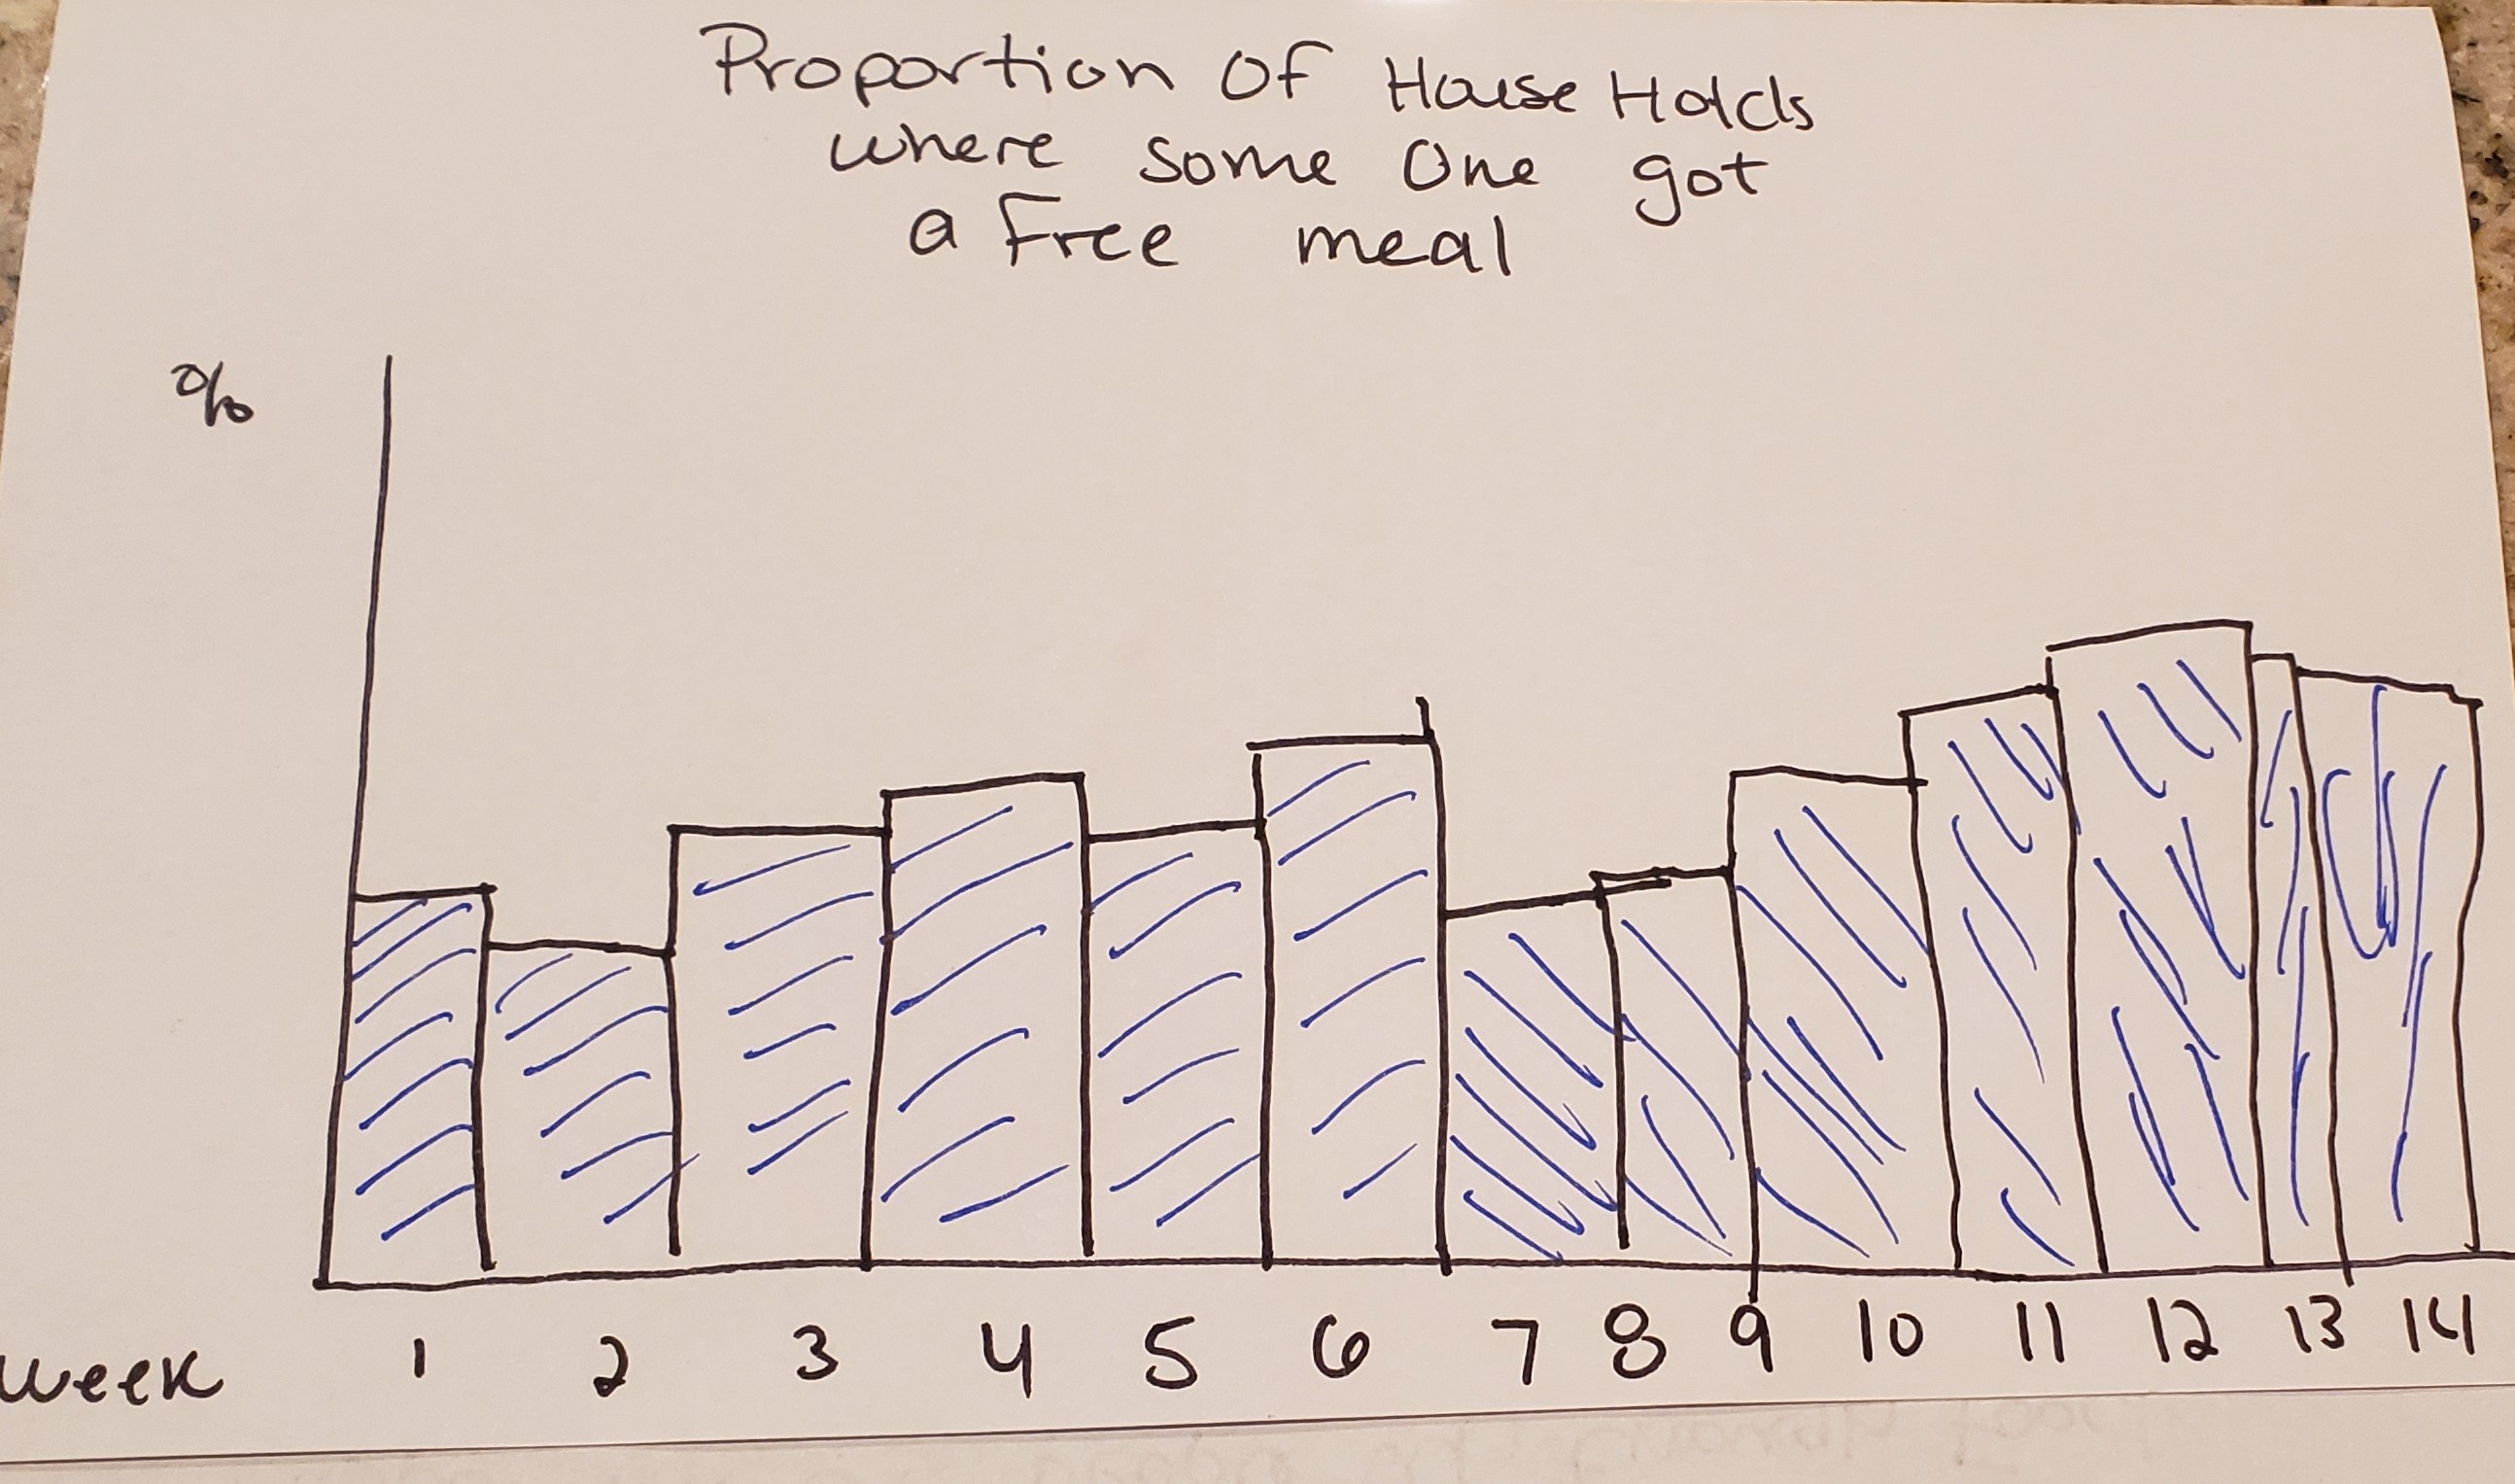 Proportion of House Holds
where some one got
a Free meal
%
week 1 2 3 4 5 6 7 8 9 10 11 12 13 14